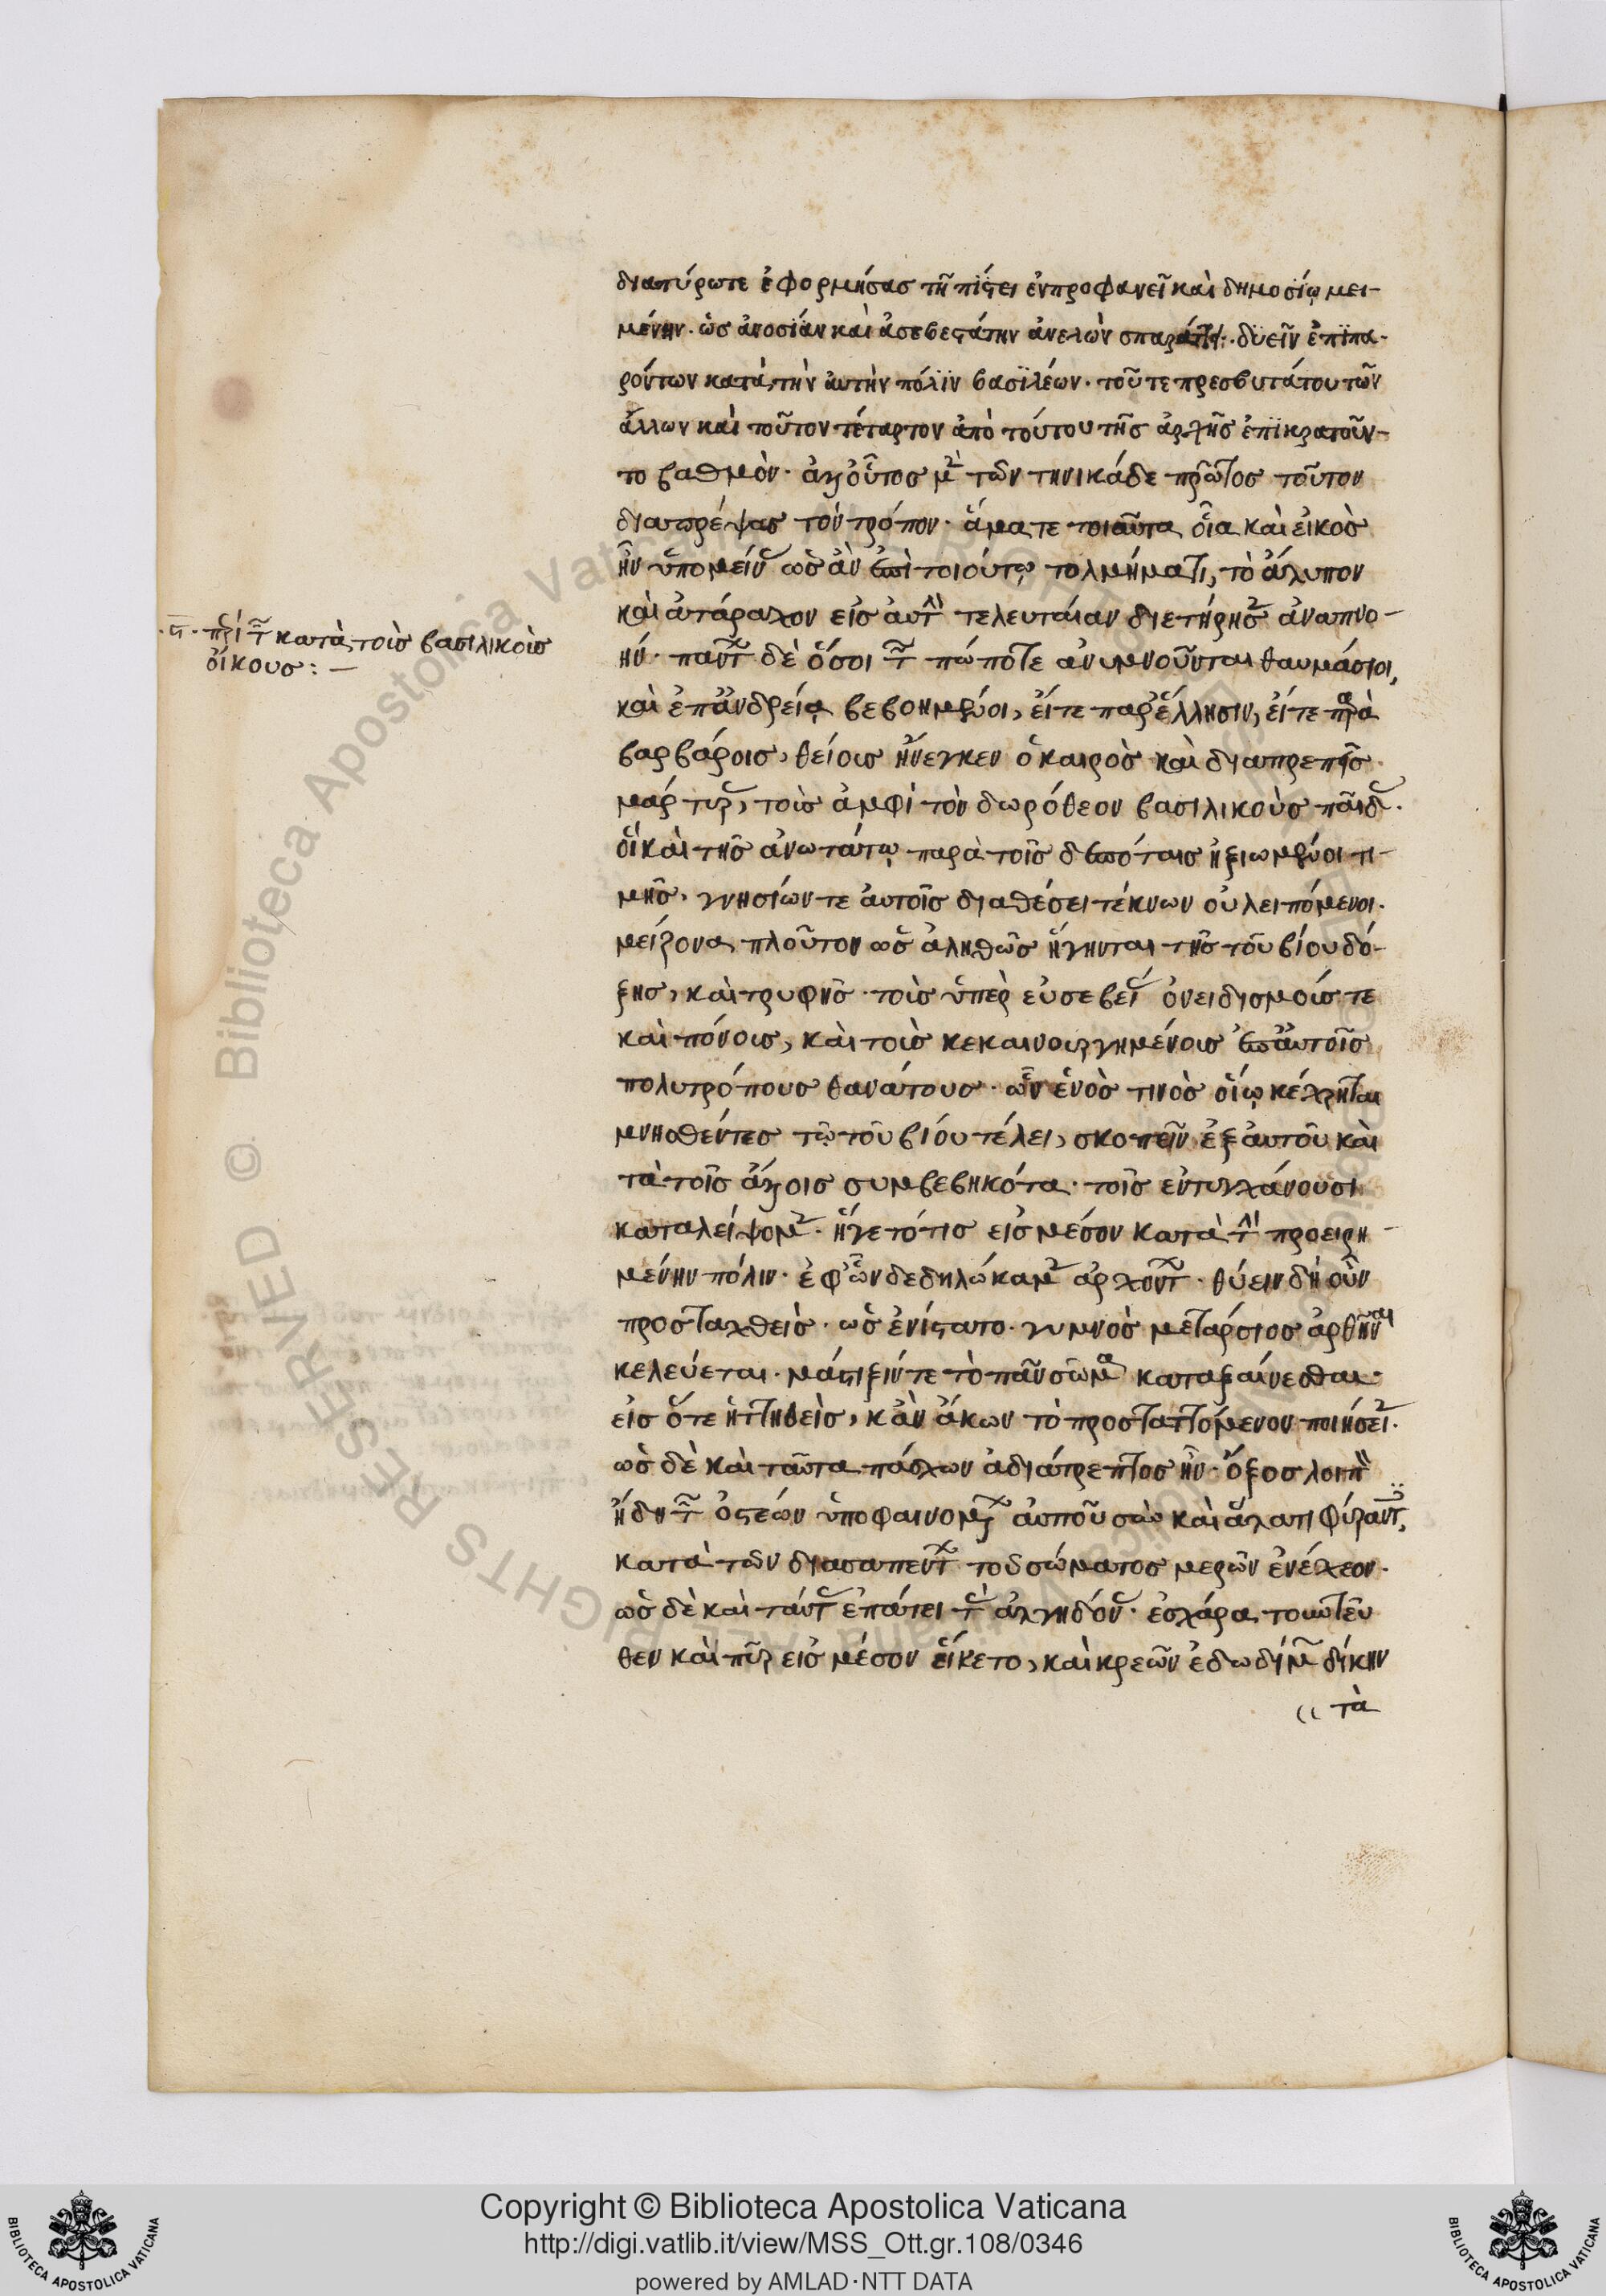 διαπύρωτε ἐφορμήσας τῆ πίστει ἐν προφανεῖ καὶ δημοσίῳ μει-
μένην. ὡς ἀνοσίαν καὶ ἀσεβεστάτην ἀνελὼν σπαράττει. δυεῖν ἐπιπα-
ρόντων κατὰ τὴν αὐτὴν πόλιν βασιλέων. τοῦτε πρεσβυτάτου τῶν
ἄλλων καὶ τοῦτον τέταρτον ἀπὸ τούτου τῆς ἀρχῆς ἐπικρατοῦν-
το βαθμὸν. ἀλλ' οὗτος μὲν τῶν τηνικάδε πρῶτος τοῦτον
διαπρέψας τὸν τρόπον. ἅματε τοιαῦτα οἷα καὶ εἰκὸς
ἦν ὑπομείνας ὡς ἂν ἐπὶ τοιούτῳ τολμήματι, τὸ ἄλυπον
καὶ ἀτάραχον εἰς αὐτὴν τελευταίαν διετήρησεν ἀναπνο-
ήν. πάντων δὲ ὅσοι τῶν πώποτε ἀνυμνοῦνται θαυμάσιοι,
καὶ ἐπ' ἀνδρείᾳ βεβοημένοι, εἴτε παρ' ἕλλησιν, εἴτε παρὰ
βαρβάροις, θείους ἤνεγκεν ὁ καιρὸς καὶ διαπρεπεῖς
μάρτυρας, τοὺς ἀμφὶ τὸν δωρόθεον βασιλικοὺς παῖδας.
οἳ καὶ τῆς ἀνωτάτω παρὰ τοῖς δεσπόταις ἠξιωμένοι τι-
μῆς. γνησίων τε αὐτοῖς διαθέσει τέκνων οὐ λειπόμενοι.
μείζονα πλοῦτον ὡς ἀληθῶς ἥγηνται τῆς τοῦ βίου δό-
ξης, καὶ τρυφῆς. τοὺς ὑπὲρ εὐσεβείας ὀνειδισμούς τε
καὶ πόνους, καὶ τοὺς κεκαινουργημένους ἐπ' αὐτοῖς
πολυτρόπους θανάτους. ὧν ἑνὸς τινὸς οἵῳ κέχρηται
μνησθέντες τῷ τοῦ βίου τέλει, σκοπεῖν ἐξ αὐτοῦ καὶ
τὰ τοῖς ἄλλοις συμβεβηκότα. τοῖς ἐντυγχάνουσι
καταλείψομεν. ἤγετό τις εἰς μέσον κατὰ τὴν προειρη-
μένην πόλιν. ἐφ' ὧν δεδηλώκαμεν ἀρχόντων. θύειν δὴ οὖν
προσταχθεὶς. ὡς ἐνίστατο. γυμνὸς μετάρσιος ἀρθῆναι
κελεύεται. μάστιξίν τε τὸ πᾶν σῶμα καταξαίνεσθαι.
εἰς ὅτε ἡττηθεὶς, κἂν ἄκων τὸ προσταττόμενον ποιήσειεν.
ὡς δὲ καὶ ταῦτα πάσχων ἀδιάτρεπτος ἦν. ὄξος λοιπὸν
ἤδη τῶν ὀστέων ὑποφαινομένων αὐτοῦ σὺν καὶ ἅλατι φύραντες,
κατὰ τῶν διασαπέντων τοῦ σώματος μερῶν ἐνέχεον.
ὡς δὲ καὶ ταύτας ἐπάτει τὰς ἀλγηδόνας. ἐσχάρα τουντεῦ
θεν καὶ πῦρ εἰς μέσον εἵλκετο, καὶ κρεῶν ἐδωδίμων δίκην
τὰ
·ϛ· περὶ τῶν κατὰ τοὺς βασιλικοὺς
οἴκους:—
Copyright © Biblioteca Apostolica Vaticana
http://digi.vatlib.it/view/MSS_Ott.gr.108/0346
powered by AMLAD·NTT DATA
BIBLIOTECA APOSTOLICA VATICANA
BIBLIOTECA APOSTOLICA VATICANA